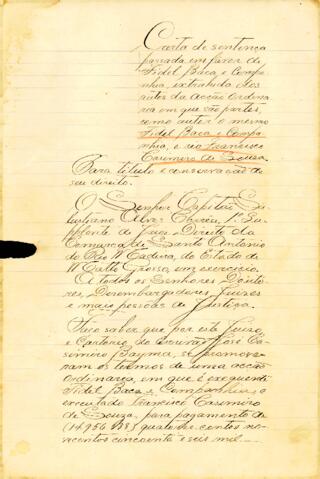 Carta de sentença
passada em favor de
Fidel Baca e Compa-
nhia, extrahida dos
autos da acção Ordina-
ria em que são partes,
como autor o mesmo
Fidel Baca e Compa-
nhia, e réo Francisco
Casimiro de Souza.
Para titulo e conservação de
seu direito.
O Senhor Capitão
Alves Corrêa, 1º Sup-
plente do Juiz de Direito da
Comarca de Santo Antonio
do Rio Madeira, do Estado de
Matto Grosso, em exercicio.
A todos os Senhores Douto-
res, Desembargadores, Juizes
e mais pessoas da Justiça.
Faço saber que por este Juizo
e Cartorio do Escrivão José Ca-
simiro Bayma, se promove-
ram os termos de uma acção
Ordinaria, em que é exequente
Fidel Baca e Companhia, e
executado Francisco Casimiro
de Souza, para pagamento de
quatorze contos no-
vecentos cincoenta e seis mil